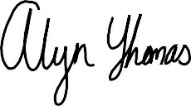 Alyn Thomas